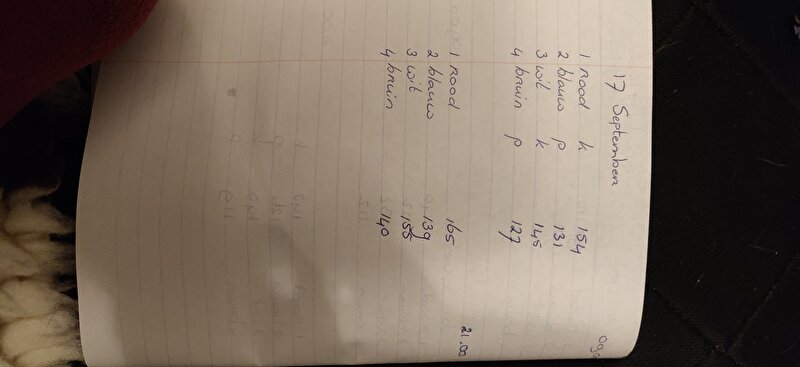 17 September
1 rood k 154
2 blauw p 131
3 wit k 145
4 bruin p 127
21,00
1 rood 165
2 blauw 139
3 wit 155
4 bruin 140